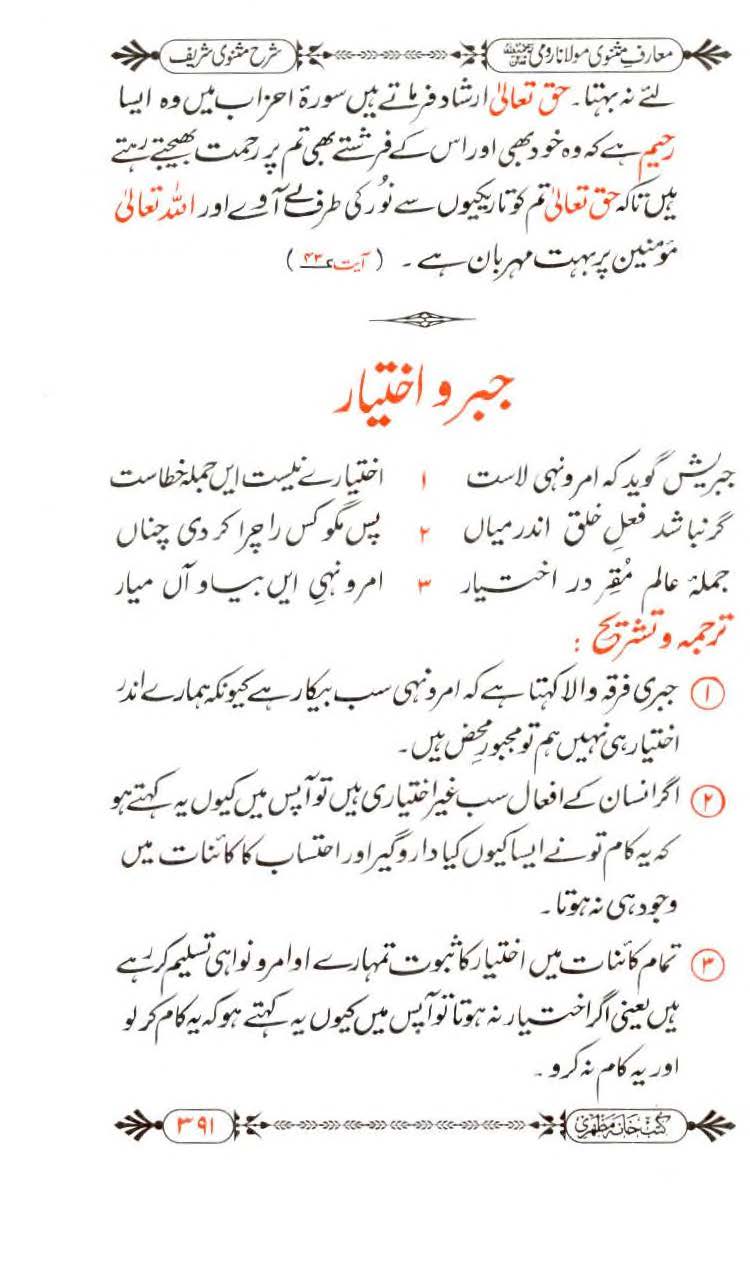 معارفِ مثنوی مولانا رومی رحمۃ اللہ علیہ شرح مثنوی شریف
لئے نہ بہتا۔ حق تعالیٰ ارشاد فرماتے ہیں سورۂ احزاب میں وہ ایسا
رحیم ہے کہ وہ خود بھی اور اس کے فرشتے بھی تم پر رحمت بھیجتے رہتے
ہیں تاکہ حق تعالیٰ تم کو تاریکیوں سے نُور کی طرف لے آوے اور اللہ تعالیٰ
مؤمنین پر بہت مہربان ہے۔ (آیت ۴۳)
جبر و اختیار
جبریش گوید کہ امر و نہی لاست ۱ اختیارے نیست ایں جملہ خطاست
گر نباشد فعلِ خلق اندر میاں ۲ پس مگو کس را چرا کر دی چناں
جملۂ عالم مُقِر در اختیار ۳ امر و نہیِ ایں بیا و آں میار
ترجمہ و تشریح :
۱ جبری فرقہ والا کہتا ہے کہ امر و نہی سب بیکار ہے کیونکہ ہمارے اندر
اختیار ہی نہیں ہم تو مجبورِ محض ہیں۔
۲ اگر انسان کے افعال سب غیر اختیاری ہیں تو آپس میں کیوں یہ کہتے ہو
کہ یہ کام تو نے ایسا کیوں کیا دار وگیر اور احتساب کا کائنات میں
وجود ہی نہ ہوتا۔
۳ تمام کائنات میں اختیار کا ثبوت تمہارے اوامر و نواہی تسلیم کر رہے
ہیں یعنی اگر اختیار نہ ہوتا تو آپس میں کیوں یہ کہتے ہو کہ یہ کام کر لو
اور یہ کام نہ کرو۔
کتب خانہ مظہری ۳۹۱